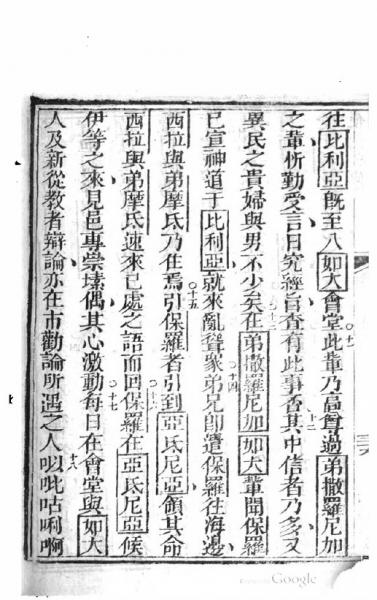 往比利亞旣至入如大會堂此輩乃高尊過弟撒羅尼加
之輩忻勤受言日究經旨查有此事否其中信者乃多又
異民之貴婦與男不少矣在弟撒羅尼加如大輩聞保羅
已宣神道于比利亞就來亂聳眾弟兄卽遣保羅往海邊
西拉與弟摩氐乃住焉引保羅者引到亞氐尼亞領其命
西拉與弟摩氐速來已處之語而回保羅在亞氐尼亞候
伊等之來見邑專祟塐偶其心激動每日在會堂與如大
人及新從教者辯論亦在市勸論所遇之人以吡咕唎啊
十一
十二
十三
十四
十五
十六
十七
十八
Google